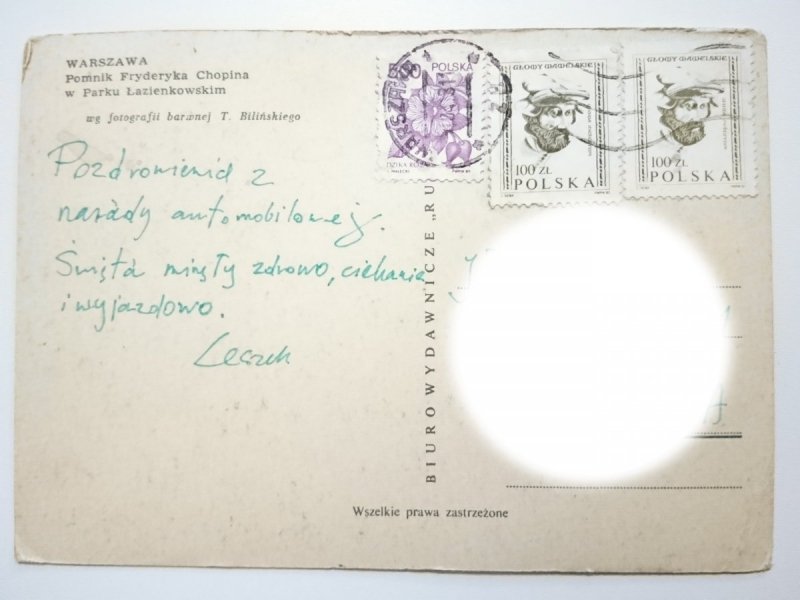 WARSZAWA
Pomnik Fryderyka Chopina
w Parku Łazienkowskim
wg fotografii barwnej T. Bilińskiego
Pozdrowienia z
narady automobilowej.
Święta minęły zdrowo, ciekawie
i wyjazdowo.
Leszek
BIURO WYDAWNICZE „RU
POLSKA
DZIKA
WARSZAWA
GŁOWY WAWELSKIE
100 ZŁ
POLSKA
GŁOWY WAWELSKIE
100 ZŁ
POLSKA
Wszelkie prawa zastrzeżone